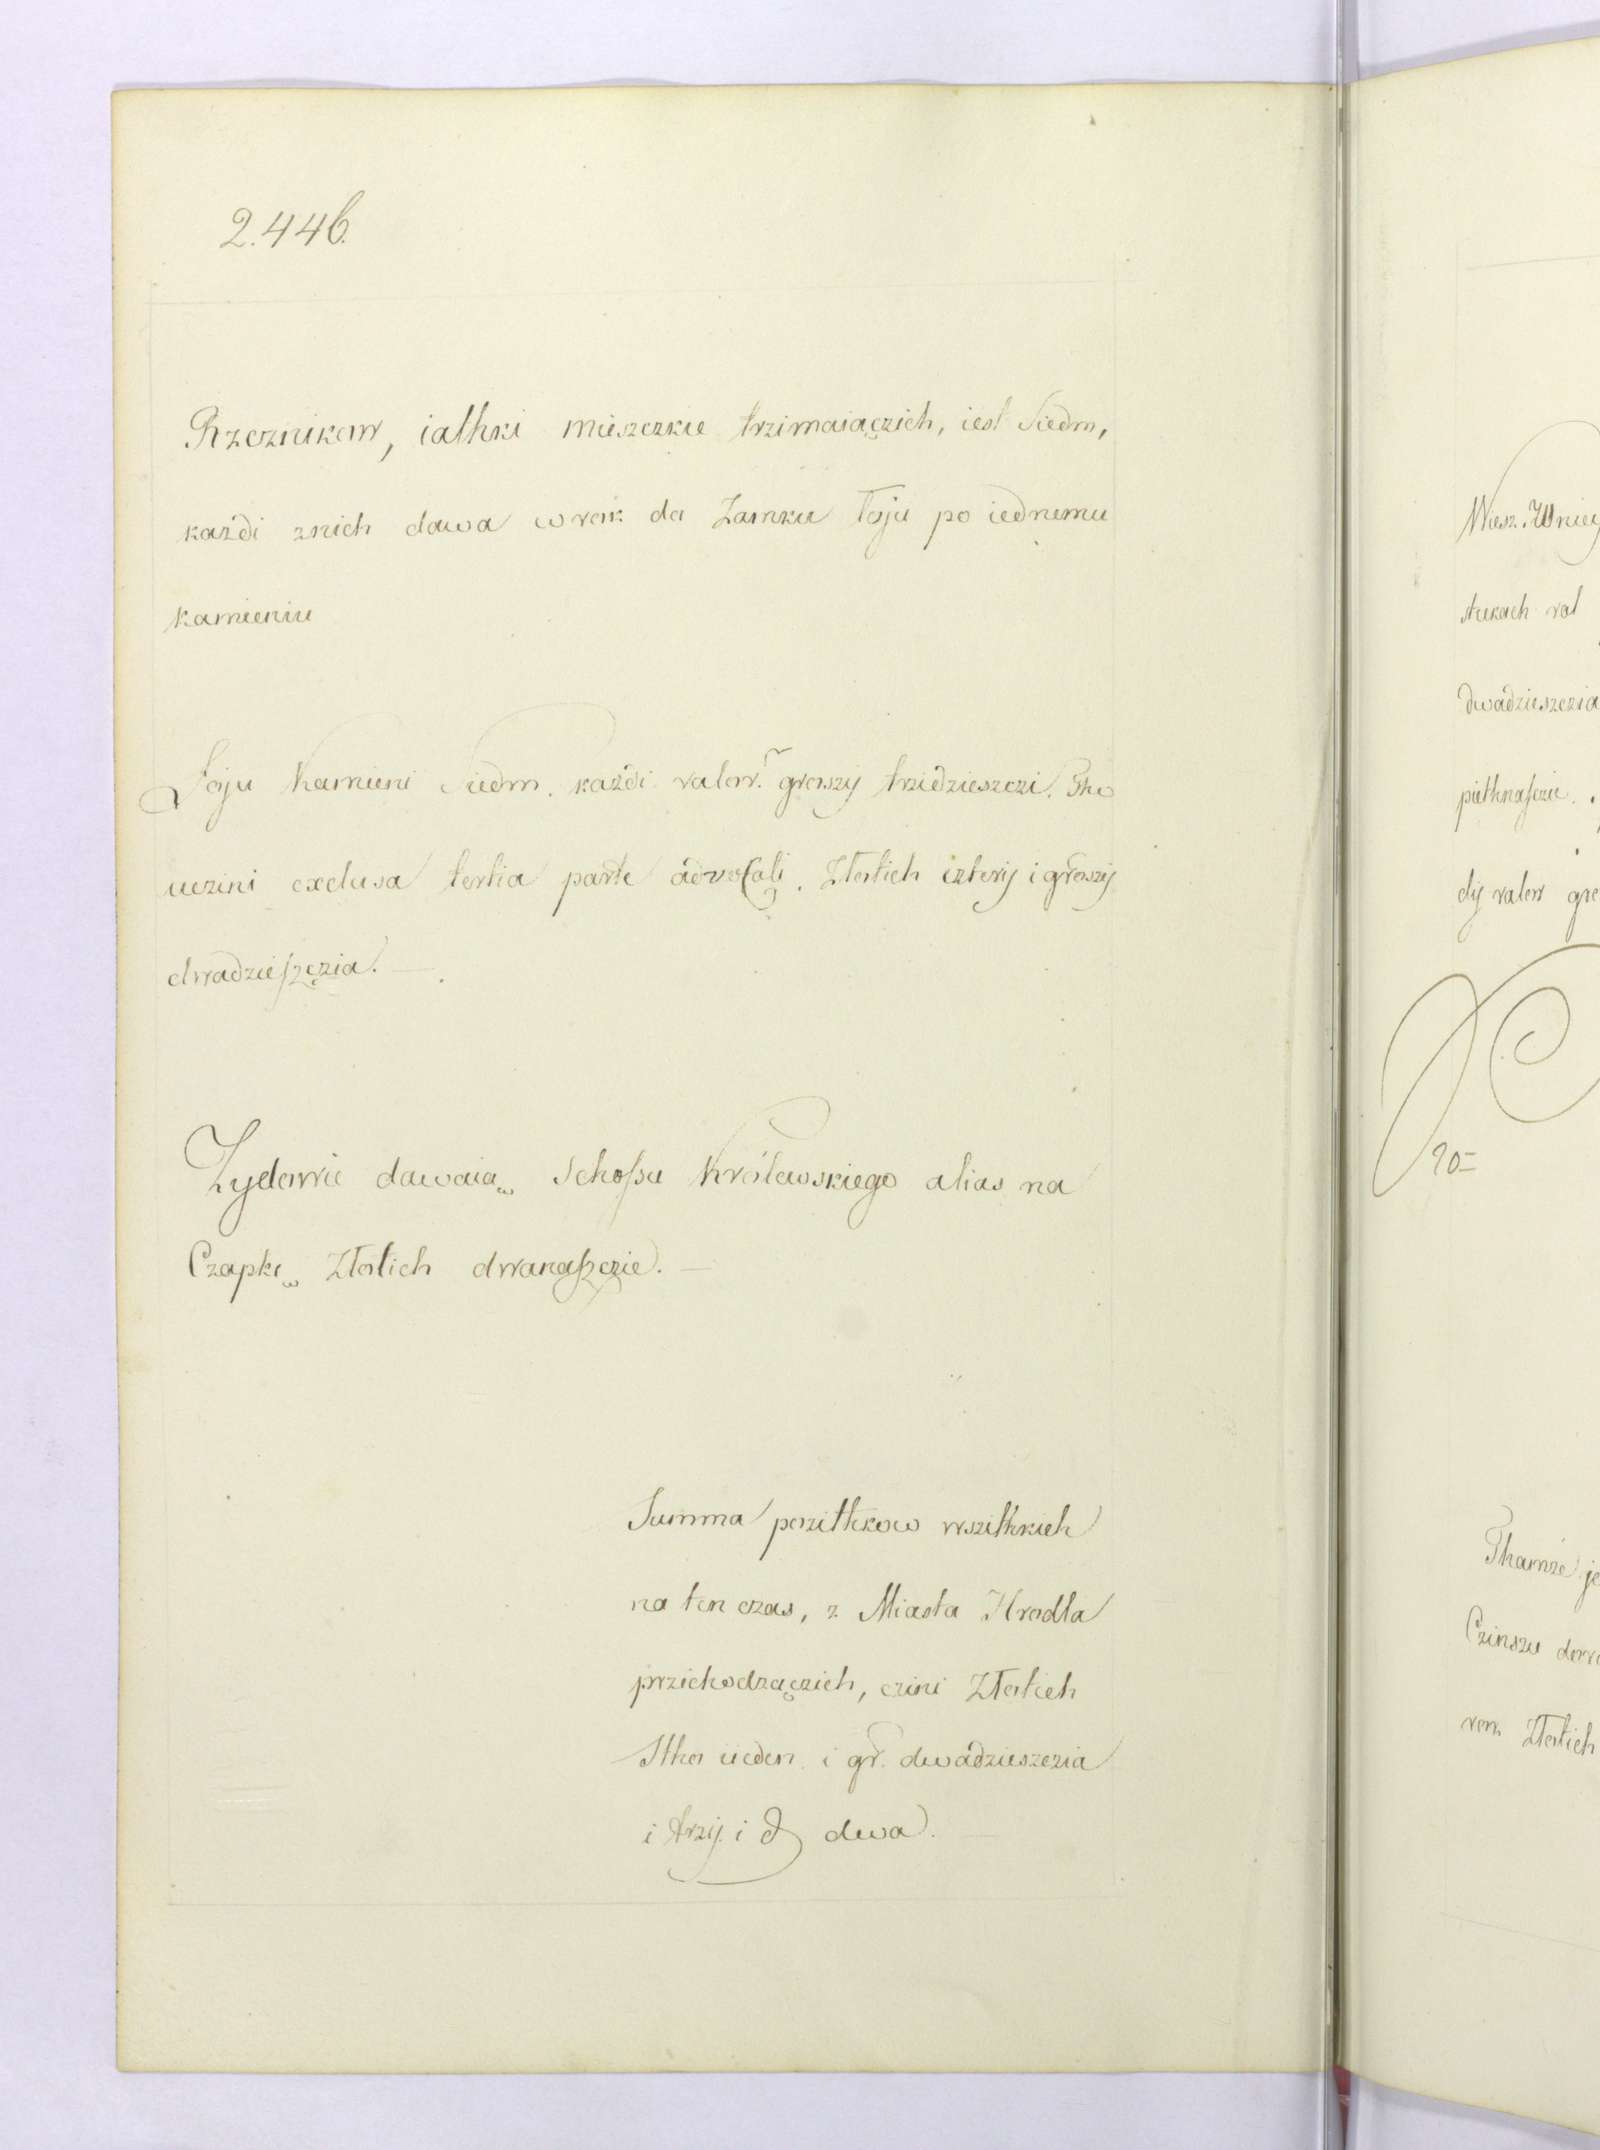 2.446.
Rzeznikow, iathki mieszczkie trzimaiączich, iest Siedm,
każdi znich dawa w rok do Zamku Łoju po iednemu
kamieniu
Łoju Kamieni Siedm. każdi valor. groszy trzidzieszczi. Tho
uczini exclusa tertia parte advocati. Złotich czterij i groszij
dwadzieszczia.
Zydowie dawaią Schossu Królewskiego alias na
Czapkę Złotich dwanaszczie.
Summa pozithkow wszithkich
na ten czas, z Miasta Hrodla
przichodzączich, czini Złotich
Stho ieden. i gr. dwadzieszczia
i trzij. i d dwa.
stukach
dwadzieszczia
piethnasczie.
dij valor
Thamże
Czinszu
Złotich